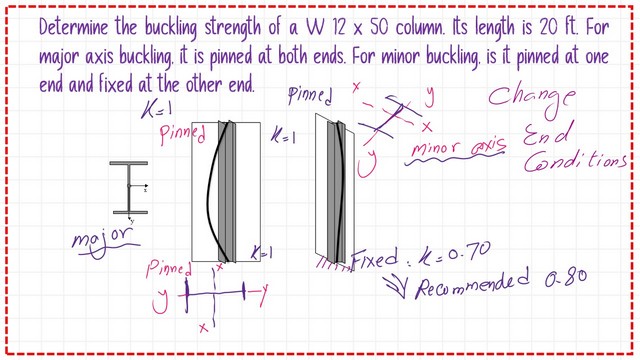 Determine the buckling strength of a W 12 x 50 column. Its length is 20 ft. For
major axis buckling, it is pinned at both ends. For minor buckling, is it pinned at one
end and fixed at the other end.
K=1
Pinned
K=1
K=1
Pinned
major
z
y
x
y
y
x
Pinned
x
y
x
y
minor axis
Change
End
Conditions
Fixed : K=0.70
Recommended 0.80